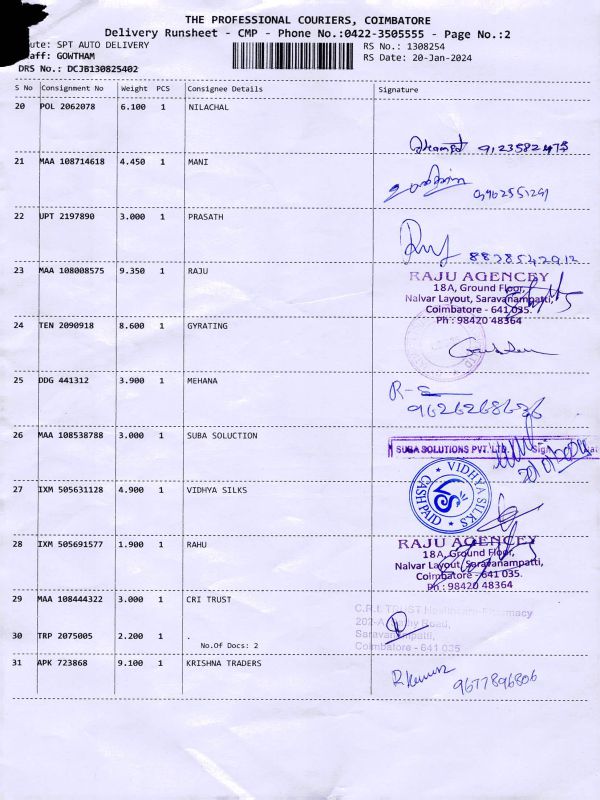 THE PROFESSIONAL COURIERS, COIMBATORE
Delivery Runsheet - CMP - Phone No.:0422-3505555 - Page No.:2
ute: SPT AUTO DELIVERY RS No.: 1308254
aff: GOWTHAM RS Date: 20-Jan-2024
DRS No.: DCJB130825402
S No Consignment No Weight PCS Consignee Details Signature
20 POL 2062078 6.100 1 NILACHAL
21 MAA 108714618 4.450 1 MANI
22 UPT 2197890 3.000 1 PRASATH
23 MAA 108008575 9.350 1 RAJU
RAJU AGENCEY
18A, Ground Floor,
Nalvar Layout, Saravanampatti,
Coimbatore - 641 035.
Ph : 98420 48364
24 TEN 2090918 8.600 1 GYRATING
25 DDG 441312 3.900 1 MEHANA
26 MAA 108538788 3.000 1 SUBA SOLUCTION
SUBA SOLUTIONS PVT. LTD.
27 IXM 505631128 4.900 1 VIDHYA SILKS
VIDHYA SILKS
CASH PAID
28 IXM 505691577 1.900 1 RAHU
RAJU AGENCEY
18A, Ground Floor,
Nalvar Layout, Saravanampatti,
Coimbatore - 641 035.
Ph : 98420 48364
29 MAA 108444322 3.000 1 CRI TRUST
30 TRP 2075005 2.200 1 .
Saravanampatti,
No.Of Docs: 2
Coimbatore - 641 035
31 APK 723868 9.100 1 KRISHNA TRADERS
9677896806